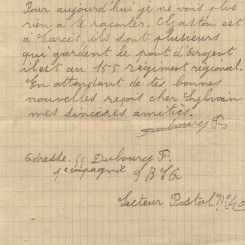 Pour aujourd'hui je ne vois plus
rien à te raconter. Gaston est
à Larcei, ils sont plusieurs
qui gardent le pont d'Argent
il est au 155 régiment régional.
En attendant de tes bonnes
nouvelles reçois cher Sylvain
mes sincères amitiés.
Dubourg F.
Adresse, Dubourg F.
1e compagnie
Secteur Postal No